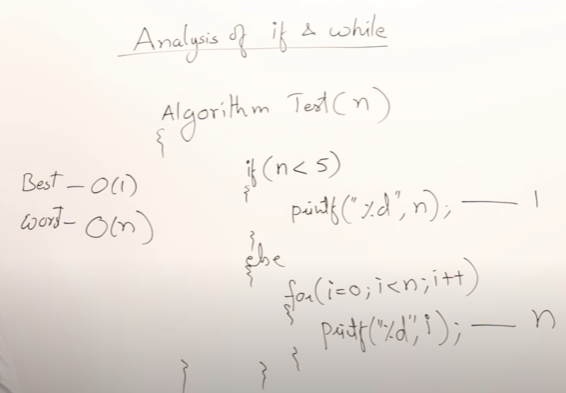 Analysis of if & while
Algorithm Test(n)
{
if(n<5)
{
printf("%d", n); — 1
}
else
{
for(i=0; i<n; i++)
{
printf("%d", i); — n
}
} }
Best - O(1)
Worst - O(n)